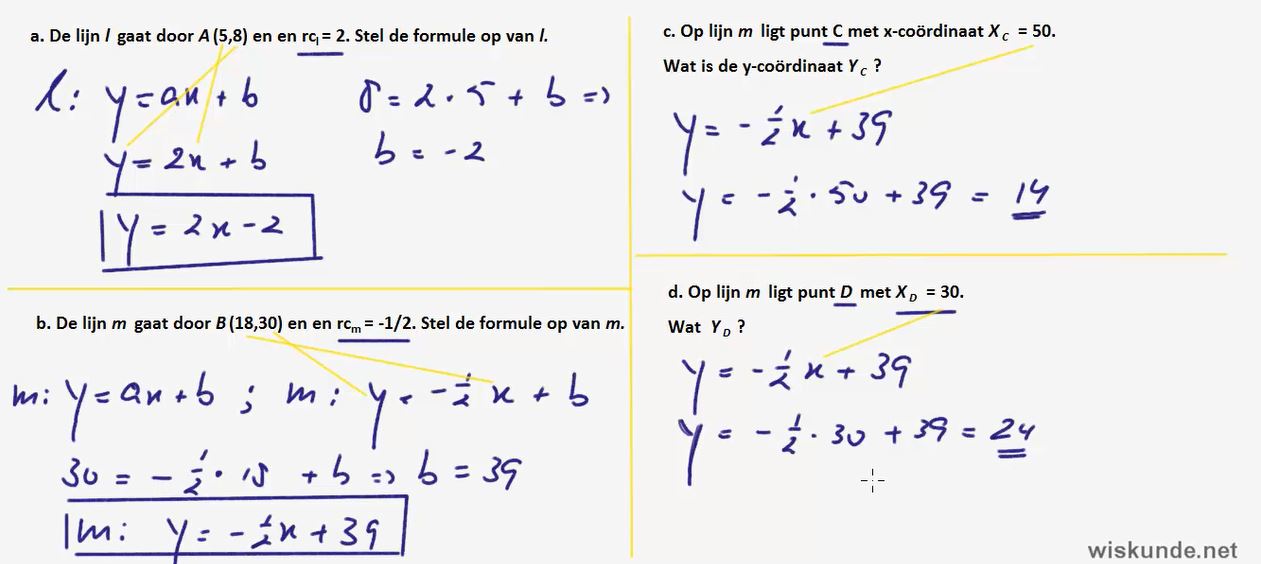 a. De lijn l gaat door A (5,8) en en rcl = 2. Stel de formule op van l.
l: y = ax + b    8 = 2 · 5 + b =>
y = 2x + b    b = -2
y = 2x - 2
b. De lijn m gaat door B (18,30) en en rcm = -1/2. Stel de formule op van m.
m: y = ax + b ; m: y = -1/2 x + b
30 = -1/2 · 18 + b => b = 39
m: y = -1/2 x + 39
c. Op lijn m ligt punt C met x-coördinaat XC = 50.
Wat is de y-coördinaat YC ?
y = -1/2 x + 39
y = -1/2 · 50 + 39 = 14
d. Op lijn m ligt punt D met XD = 30.
Wat YD ?
y = -1/2 x + 39
y = -1/2 · 30 + 39 = 24
wiskunde.net